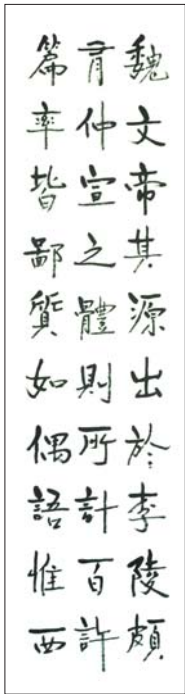 魏文帝其源出於李陵頗
有仲宣之體則所計百許
篇率皆鄙質如偶語惟西